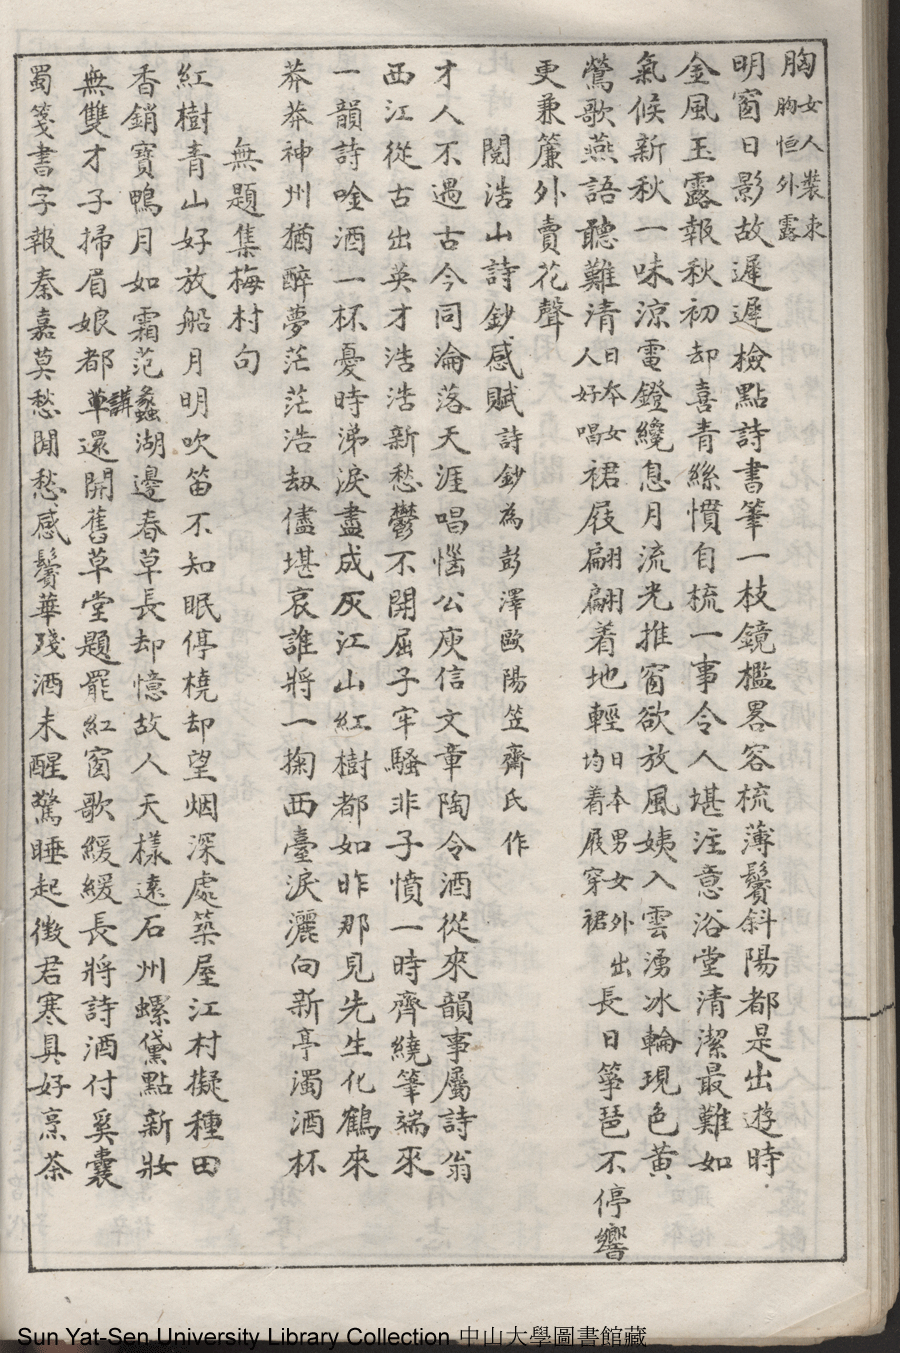 胸女人裝束胸恒外露
明窗日影故遲遲檢點詩書筆一枝鏡檻畧容梳薄鬢斜陽都是出遊時
金風玉露報秋初却喜青絲慣自梳一事令人堪注意浴堂清潔最難如
氣候新秋一味涼電鐙纔息月流光推窗欲放風姨入雲湧冰輪現色黃
鶯歌燕語聽難清日本女人好唱裙屐翩翩着地輕日本男女外出均着屐穿裙長日箏琶不停響
更兼簾外賣花聲
閱浩山詩鈔感賦詩鈔為彭澤歐陽笠齋氏作
才人不遇古今同淪落天涯唱惱公庾信文章陶令酒從來韻事屬詩翁
西江從古出英才浩浩新愁鬱不開屈子牢騷非子憤一時齊繞筆端來
一韻詩唫酒一杯憂時涕淚盡成灰江山紅樹都如昨那見先生化鶴來
莽莽神州猶醉夢茫茫浩劫儘堪哀誰將一掬西臺淚灑向新亭濁酒杯
無題集梅村句
紅樹青山好放船月明吹笛不知眠停橈却望烟深處築屋江村擬種田
香銷寶鴨月如霜范蠡湖邊春草長却憶故人天樣遠石州螺黛點新妝
無雙才子掃眉娘都講還開舊草堂題罷紅窗歌緩緩長將詩酒付奚囊
蜀箋書字報秦嘉莫愁聞愁感鬢華殘酒未醒驚睡起徵君寒具好烹茶
Sun Yat-Sen University Library Collection 中山大學圖書館藏